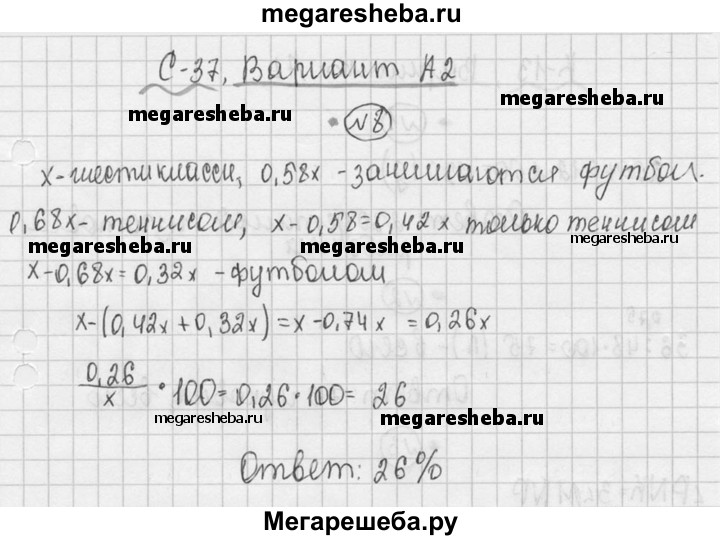 megaresheba.ru
С-37, Вариант А2
megaresheba.ru megaresheba.ru
• №8
х-шестикласси, 0,58х - занимаются футбол.
0,68х- теннисом, х- 0,58=0,42 х только теннисом
megaresheba.ru megaresheba.ru megaresheba.ru
х-0,68х= 0,32х - футболом
х-(0,42х+0,32х)= х-0,74х = 0,26х
0,26/х • 100= 0,26•100= 26
megaresheba.ru megaresheba.ru
Ответ: 26%
Мегарешеба.ру